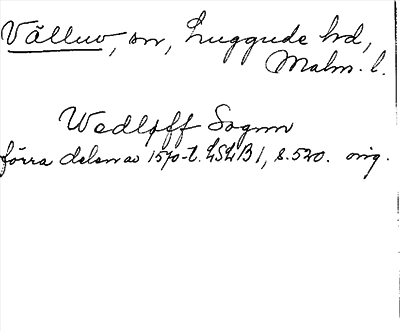 Välluv, sn, Luggude hd,
Malm. l.
Wedløff Sognn
förra delen av 1570-t. LSLB 1, s. 520. orig.